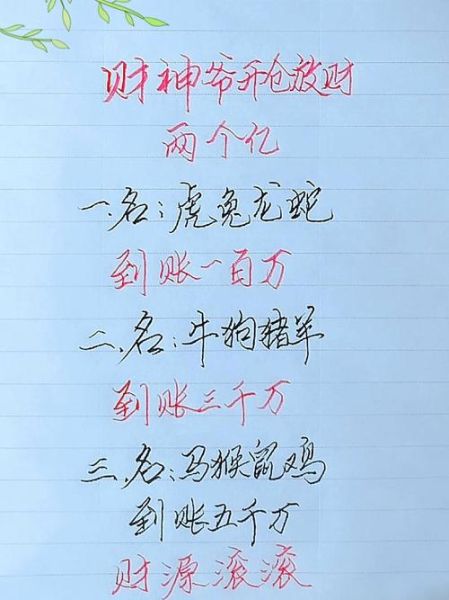 财神爷开仓放财
两个亿
一.名:虎兔龙蛇
到账一百万
二.名:牛狗猪羊
到账三千万
三.名:马猴鼠鸡
到账五千万
财源滚滚